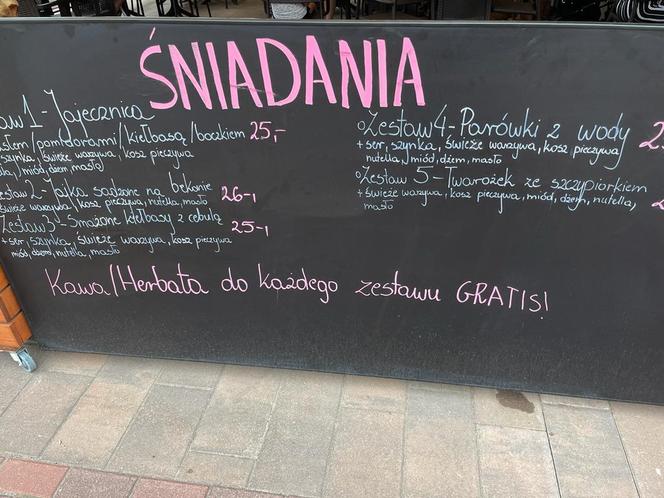 ŚNIADANIA
aw 1 - Jajecznica
/pomidorami/kiełbasą/boczkiem 25,-
szynka, świeże warzywa, kosz pieczywa
miód, dżem, masło
estaw 2 - Jajka sadzone na bekonie 26-,
świeże warzywa, kosz pieczywa, nutella, masło
Zestaw 3 - Smażone kiełbasy z cebulą 25-,
+ ser, szynka, świeże warzywa, kosz pieczywa
miód, dżem, nutella, masło
Zestaw 4 - Parówki z wody 2
+ ser, szynka, świeże warzywa, kosz pieczywa
nutella, miód, dżem, masło
Zestaw 5 - Twarożek ze szczypiorkiem
+ świeże warzywa, kosz pieczywa, miód, dżem, nutella,
masło
Kawa/Herbata do każdego zestawu GRATIS!